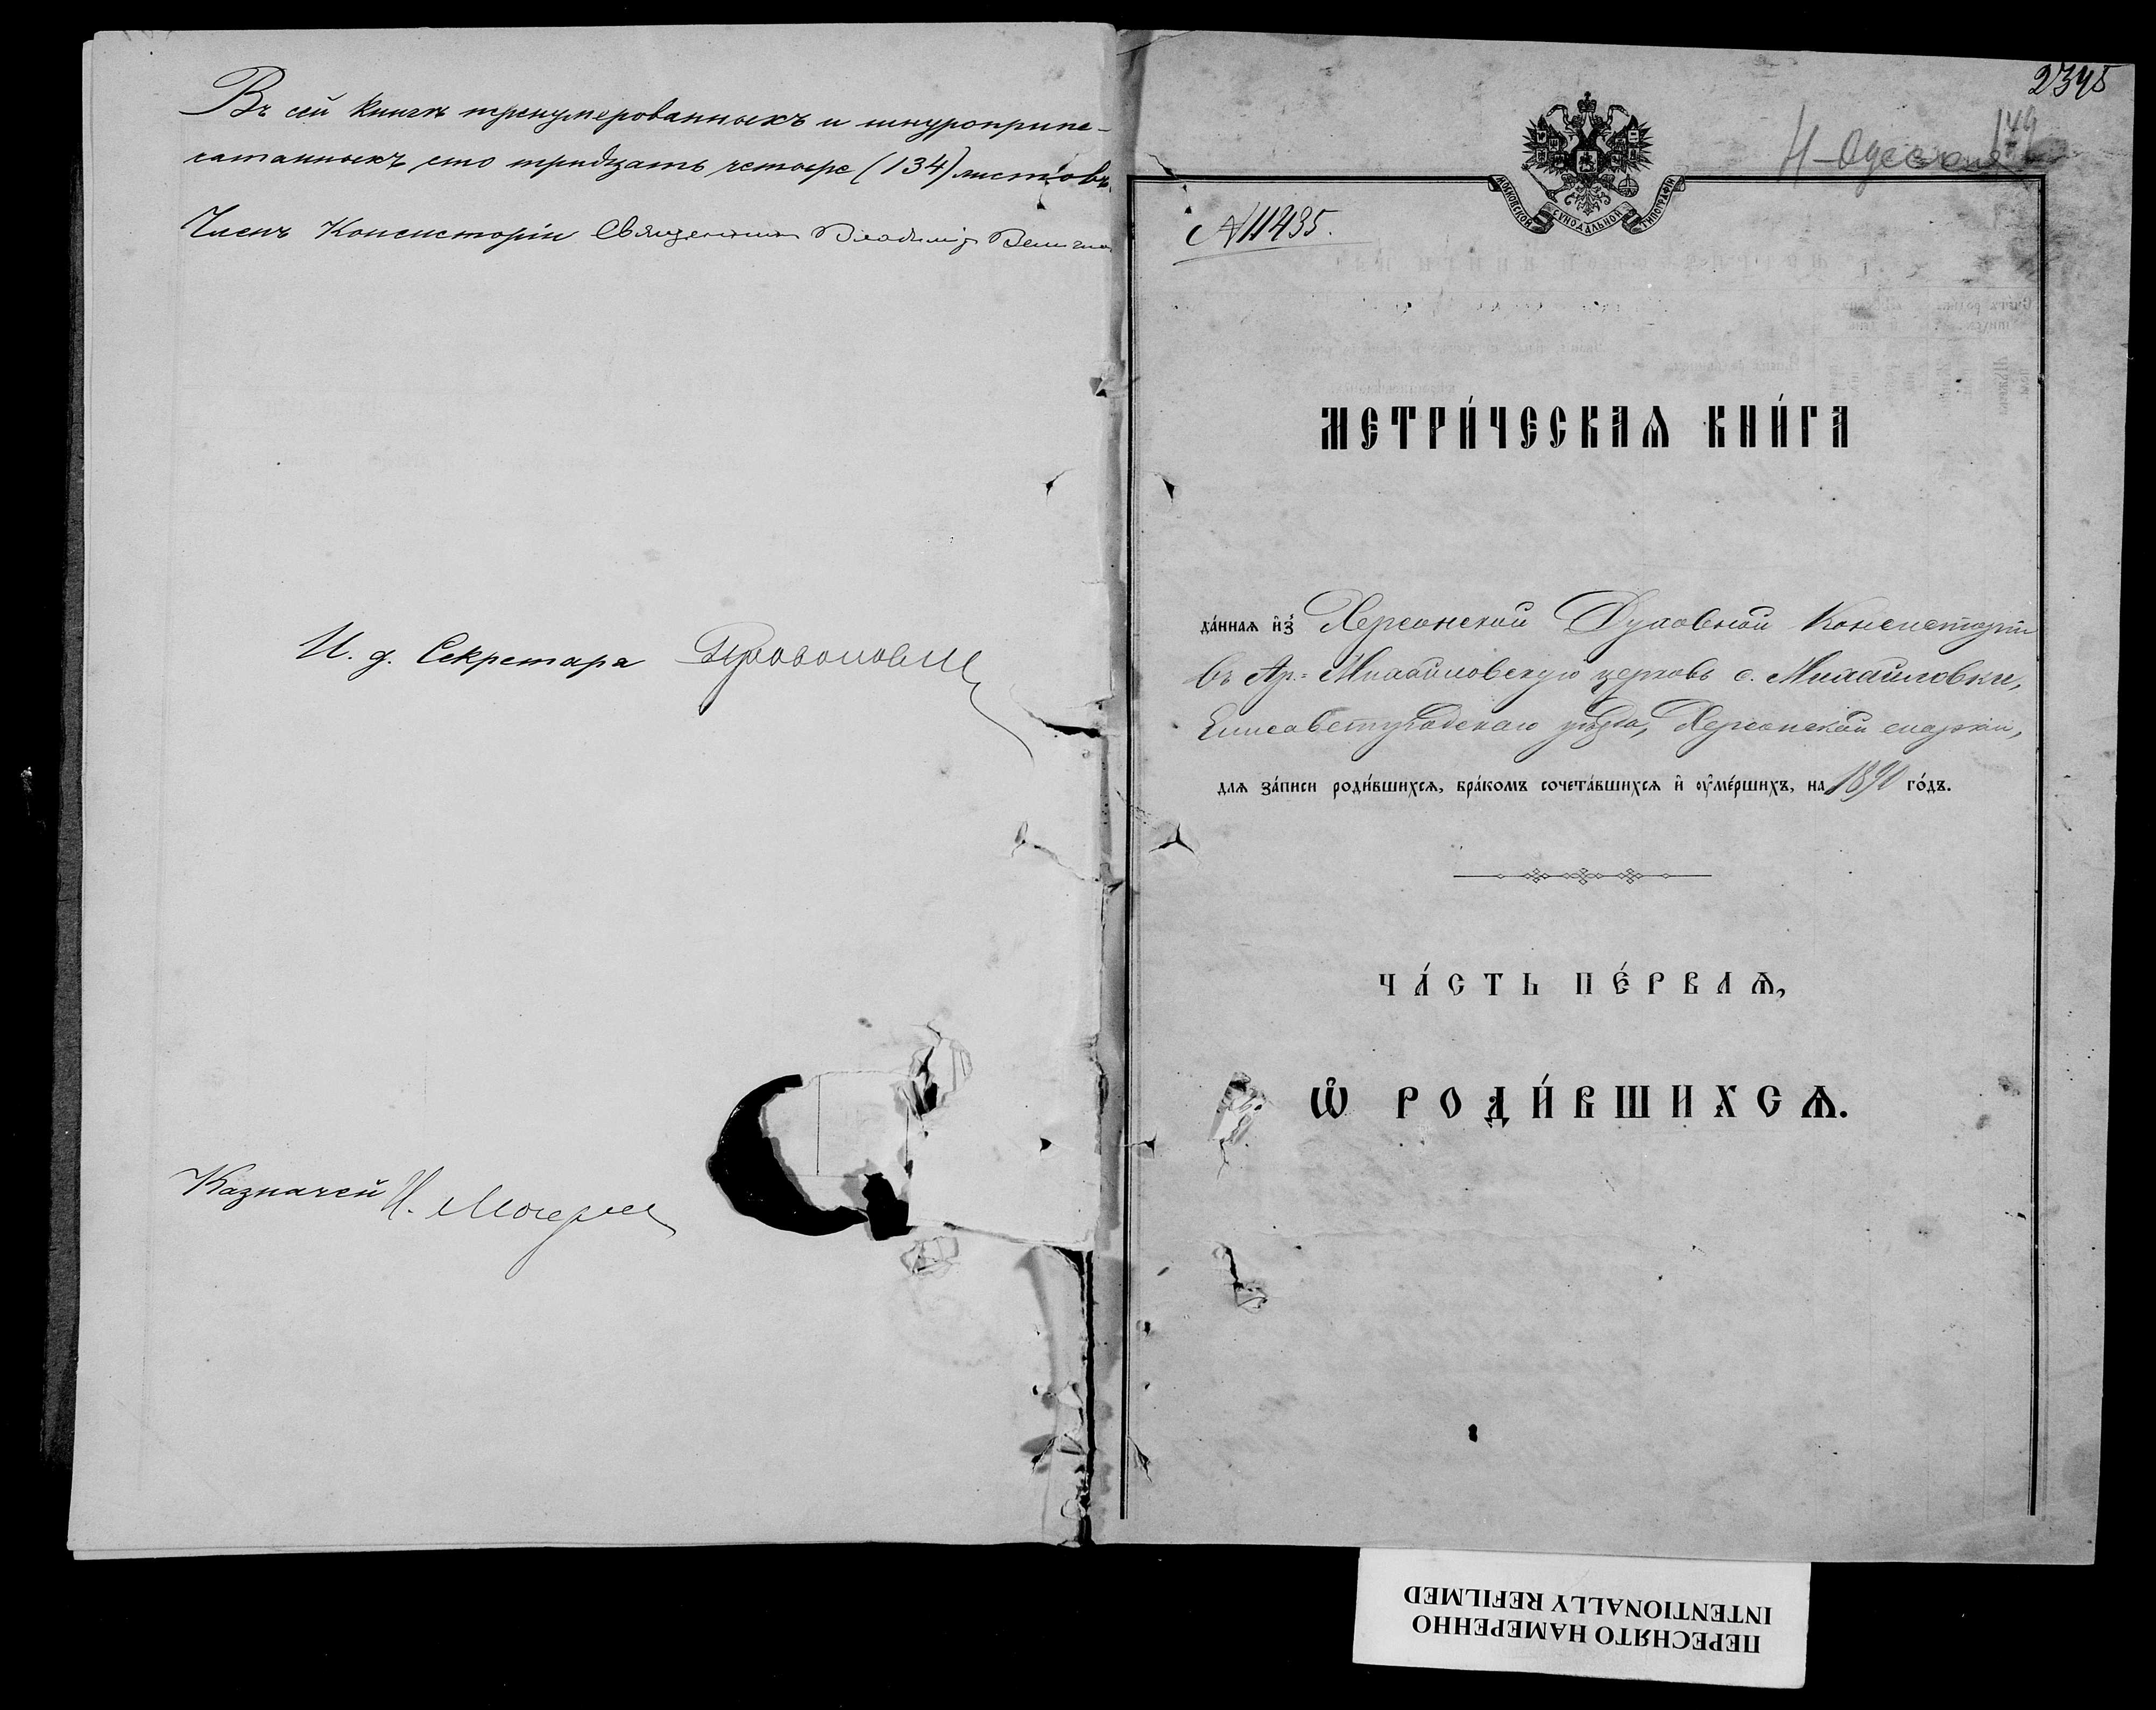 Въ сей книгѣ пренумерованныхъ и шнуроприпе-
чатанныхъ сто тридцать четыре (134) листовъ.
Членъ Консисторіи Священникъ Владиміръ
И. д. Секретаря
Казначей И.
2345
149
Н-Одесская
МОСКОВСКОЙ СУНОДАЛЬНОЙ ТИПОГРАФІИ
№11435.
МЕТРИ́ЧЕСКАѦ КНИ́ГА
да́ннаѧ и҆з̾ Херсонской Духовной Консисторіи
въ Ар.=Михайловскую церковь с. Михайловки,
Елисаветградскаго уѣзда, Херсонской епархіи,
длѧ за́писи роди́вшихсѧ, бра́комъ сочета́вшихсѧ и҆ ᲂу҆ме́ршихъ, на 1891 го́дъ.
ЧА́СТЬ ПЕ́РВАѦ,
Ѡ҆ РОДИ́ВШИХСѦ.
ПЕРЕСНЯТО НАМЕРЕННО
INTENTIONALLY REFILMED